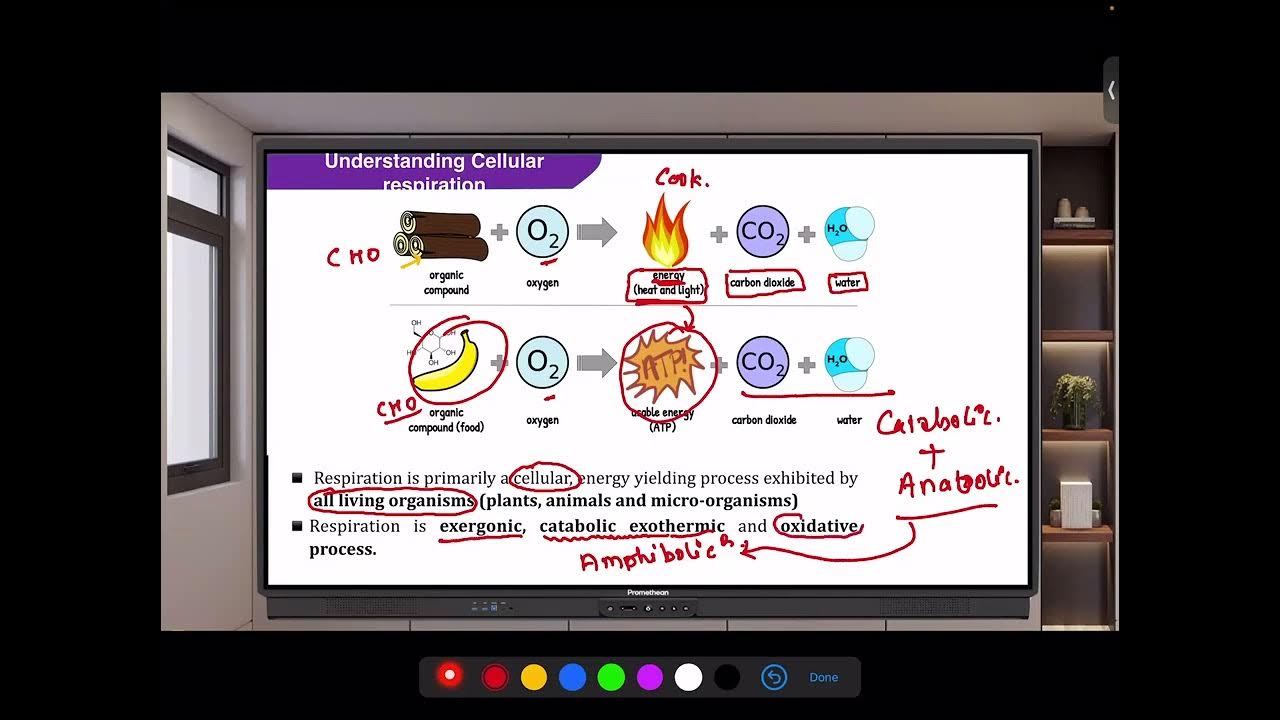 Understanding Cellular
respiration
Cook.
CHO
+ O2 + CO2 + H2O
organic
compound
oxygen
energy
(heat and light)
carbon dioxide
water
OH
OH
HO
OH
OH
+ O2 ATP! + CO2 + H2O
CHO
organic
compound (food)
oxygen
usable energy
(ATP)
carbon dioxide
water
Catabolic.
+
Anabolic.
Respiration is primarily a cellular, energy yielding process exhibited by
all living organisms (plants, animals and micro-organisms)
Respiration is exergonic, catabolic exothermic and oxidative
process.
Amphibolic
Promethean
Done